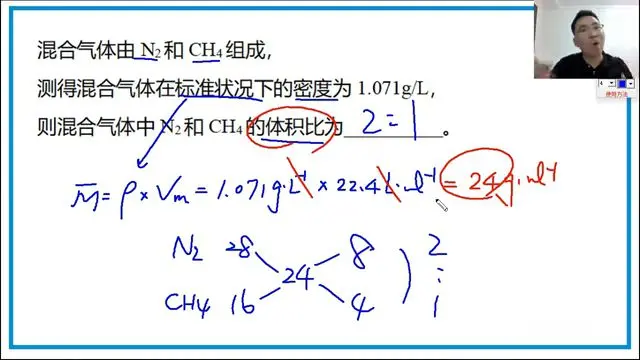 混合气体由 N₂ 和 CH₄ 组成，
测得混合气体在标准状况下的密度为 1.071g/L，
则混合气体中 N₂ 和 CH₄ 的体积比为 2=1 。
M̄= ρ × Vm = 1.071g·L⁻¹ × 22.4L·mol⁻¹ = 24g·mol⁻¹
N₂ 28 8 2
24 :
CH₄ 16 4 1
使用方法